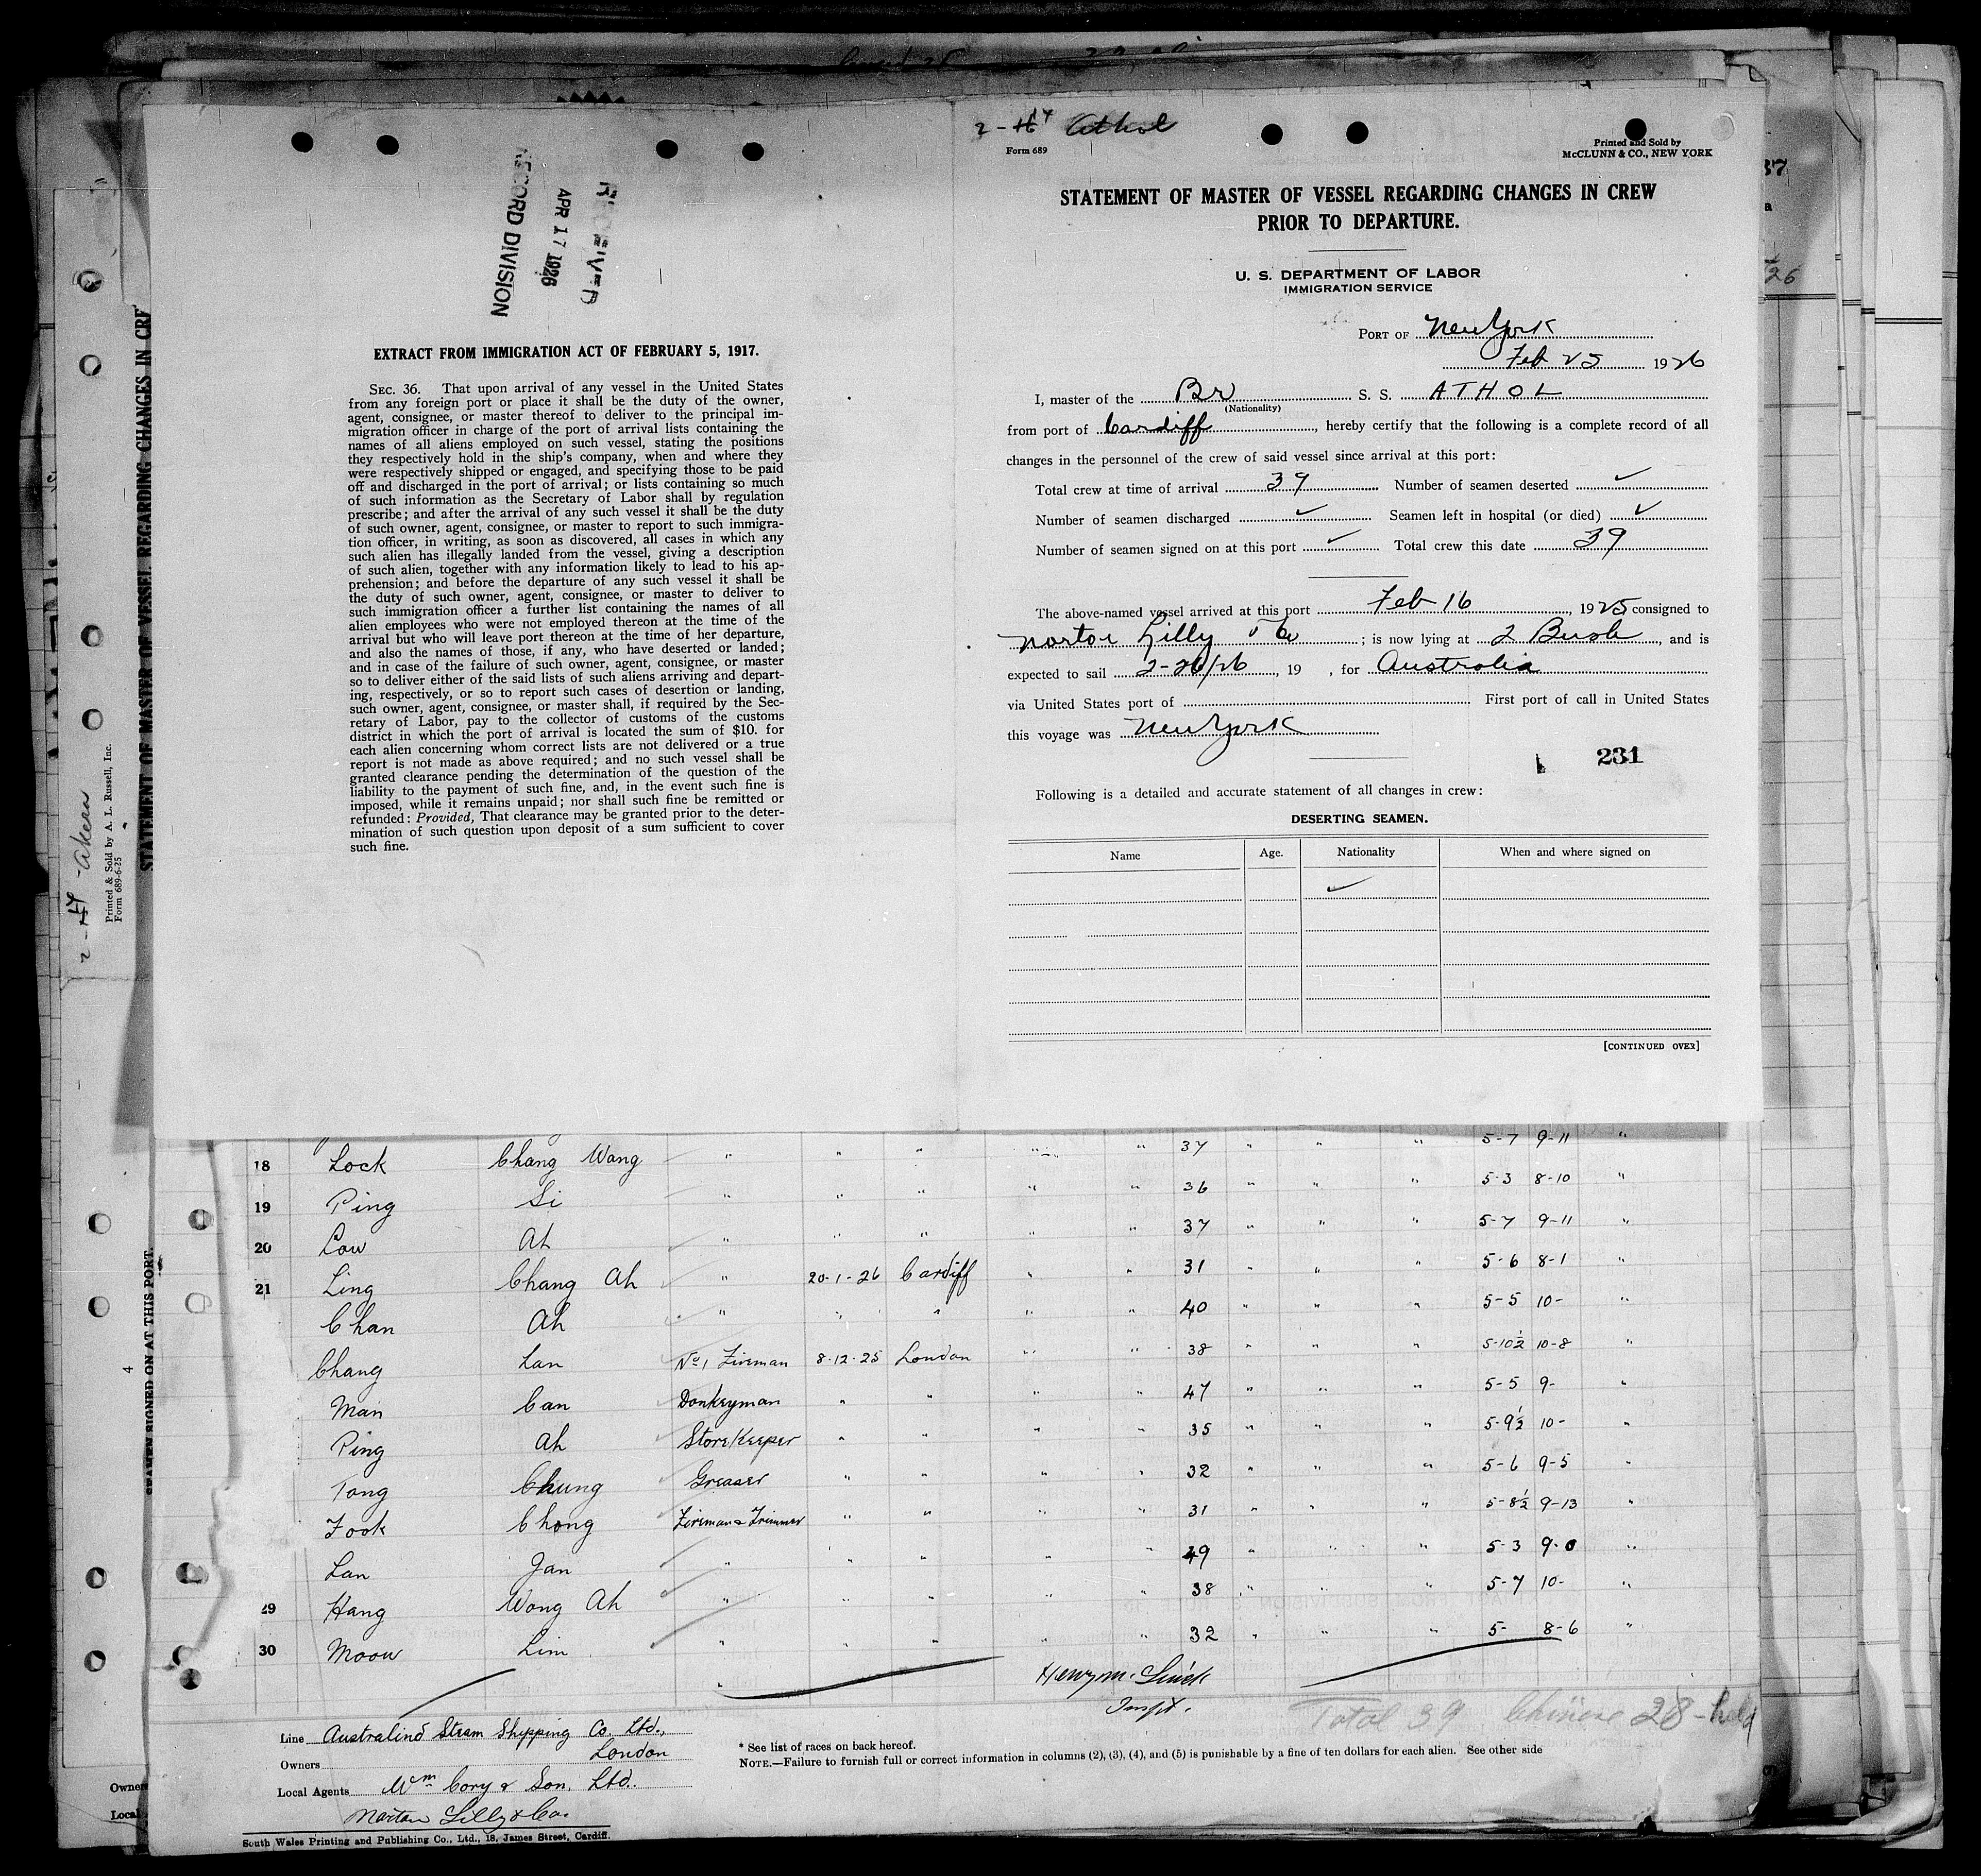 RECORD DIVISION
APR 17 1926
EXTRACT FROM IMMIGRATION ACT OF FEBRUARY 5, 1917.
SEC. 36. That upon arrival of any vessel in the United States
from any foreign port or place it shall be the duty of the owner,
agent, consignee, or master thereof to deliver to the principal im-
migration officer in charge of the port of arrival lists containing the
names of all aliens employed on such vessel, stating the positions
they respectively hold in the ship's company, when and where they
were respectively shipped or engaged, and specifying those to be paid
off and discharged in the port of arrival; or lists containing so much
of such information as the Secretary of Labor shall by regulation
prescribe; and after the arrival of any such vessel it shall be the duty
of such owner, agent, consignee, or master to report to such immigra-
tion officer, in writing, as soon as discovered, all cases in which any
such alien has illegally landed from the vessel, giving a description
of such alien, together with any information likely to lead to his ap-
prehension; and before the departure of any such vessel it shall be
the duty of such owner, agent, consignee, or master to deliver to
such immigration officer a further list containing the names of all
alien employees who were not employed thereon at the time of the
arrival but who will leave port thereon at the time of her departure,
and also the names of those, if any, who have deserted or landed;
and in case of the failure of such owner, agent, consignee, or master
so to deliver either of the said lists of such aliens arriving and depart-
ing, respectively, or so to report such cases of desertion or landing,
such owner, agent, consignee, or master shall, if required by the Sec-
retary of Labor, pay to the collector of customs of the customs
district in which the port of arrival is located the sum of $10. for
each alien concerning whom correct lists are not delivered or a true
report is not made as above required; and no such vessel shall be
granted clearance pending the determination of the question of the
liability to the payment of such fine, and, in the event such fine is
imposed, while it remains unpaid; nor shall such fine be remitted or
refunded: Provided, That clearance may be granted prior to the deter-
mination of such question upon deposit of a sum sufficient to cover
such fine.
Athol
Form 689
Printed and Sold by
McCLUNN & CO., NEW YORK
STATEMENT OF MASTER OF VESSEL REGARDING CHANGES IN CREW
PRIOR TO DEPARTURE.
U. S. DEPARTMENT OF LABOR
IMMIGRATION SERVICE
PORT OF New York
Feb 25 1926
I, master of the Br S. S. ATHOL
(Nationality)
from port of Cardiff, hereby certify that the following is a complete record of all
changes in the personnel of the crew of said vessel since arrival at this port:
Total crew at time of arrival 39 Number of seamen deserted ✓
Number of seamen discharged ✓ Seamen left in hospital (or died) ✓
Number of seamen signed on at this port ✓ Total crew this date 39
The above-named vessel arrived at this port Feb 16, 1925 consigned to
Norton Lilly & Co; is now lying at 2 Bush, and is
expected to sail 2-26/26, 19 , for Australia
via United States port of First port of call in United States
this voyage was New York
231
Following is a detailed and accurate statement of all changes in crew:
DESERTING SEAMEN.
Name Age. Nationality When and where signed on
✓
[CONTINUED OVER]
18 Lock Chang Wang " " " " " 37 " " " 5-7 9-11 "
19 Ping Si " " " " " 36 " " " 5-3 8-10 "
20 Low Ah " " " " " 37 " " " 5-7 9-11 "
21 Ling Chang Ah " 20-1-26 Cardiff " " 31 " " " 5-6 8-1 "
Chan Ah " " " " " 40 " " " 5-5 10- "
Chang Lan No 1 Fireman 8-12-25 London " " 38 " " " 5-10½ 10-8 "
Man Can Donkeyman " " " " 47 " " " 5-5 9- "
Ping Ah StoreKeeper " " " " 35 " " " 5-9½ 10- "
Tong Chung Greaser " " " " 32 " " " 5-6 9-5 "
Fook Chong Fireman & Trimmer " " " " 31 " " " 5-8½ 9-13 "
Lan Jan " " " " " 49 " " " 5-3 9-0 "
29 Hang Wong Ah " " " " " 38 " " " 5-7 10- "
30 Moow Lim " " " " " 32 " " " 5- 8-6 "
Total 39 Chinese 28 - held
Line Australind Steam Shipping Co. Ltd.,
London
Owners
Local Agents Wm Cory & Son. Ltd.
Norton Lilly & Co.
* See list of races on back hereof.
NOTE.—Failure to furnish full or correct information in columns (2), (3), (4), and (5) is punishable by a fine of ten dollars for each alien. See other side
South Wales Printing and Publishing Co., Ltd., 18, James Street, Cardiff.
STATEMENT OF MASTER OF VESSEL REGARDING CHANGES IN CRE
Printed & Sold by A. L. Russell, Inc.
Form 689-6-25
SEAMEN SIGNED ON AT THIS PORT.
4
Owners
Local